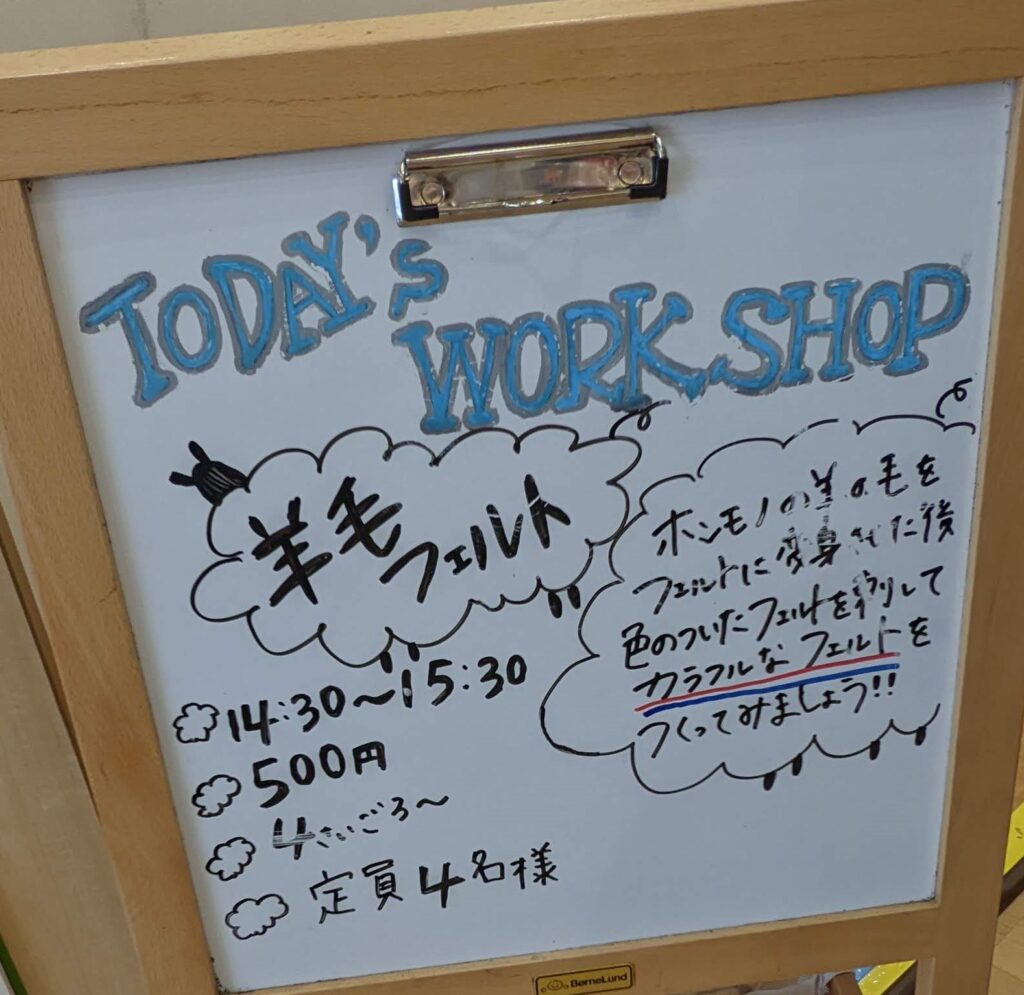 TODAY's
WORKSHOP
羊毛
フェルト
ホンモノの羊の毛を
フェルトに変身させた後
色のついたフェルトを利して
カラフルなフェルトを
つくってみましょう!!
14:30〜15:30
500円
4さいごろ〜
定員4名様
BorneLund